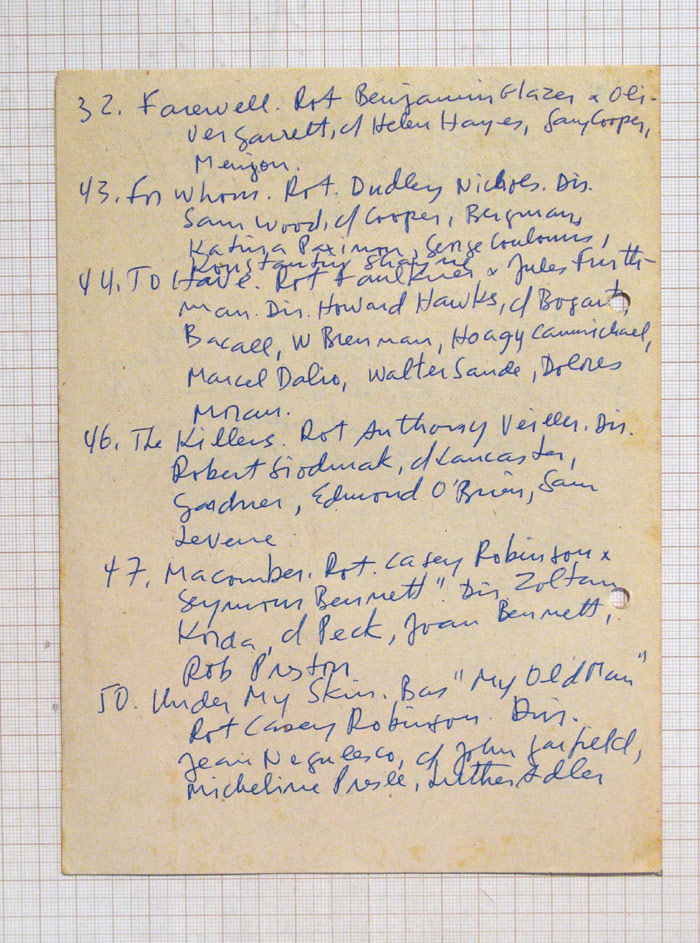 32. Farewell. Rot Benjamin Glazer x Oli-
ver Garrett, c/ Helen Hayes, Gary Cooper,
Menjou.
43. For Whom. Rot. Dudley Nichols. Dir.
Sam Wood, c/ Cooper, Bergman,
Katina Paxinou, George Coulouris,
Konstantin Shayne
44. To Have. Rot Faulkner x Jules Furth-
man. Dir. Howard Hawks, c/ Bogart,
Bacall, W Brennan, Hoagy Carmichael,
Marcel Dalio, Walter Sande, Dolores
Moran.
46. The Killers. Rot Anthony Veiller. Dir.
Robert Siodmak, c/ Lancaster,
Gardner, Edmond O'Brien, Sam
Levene
47. Macomber. Rot. Casey Robinson x
Seymour Bennett". Dir. Zoltan
Korda, c/ Peck, Joan Bennett,
Rob Preston
50. Under My Skin. Bas "My Old Man"
Rot Casey Robinson. Dir.
Jean Negulesco, c/ John Garfield,
Micheline Presle, Luther Adler